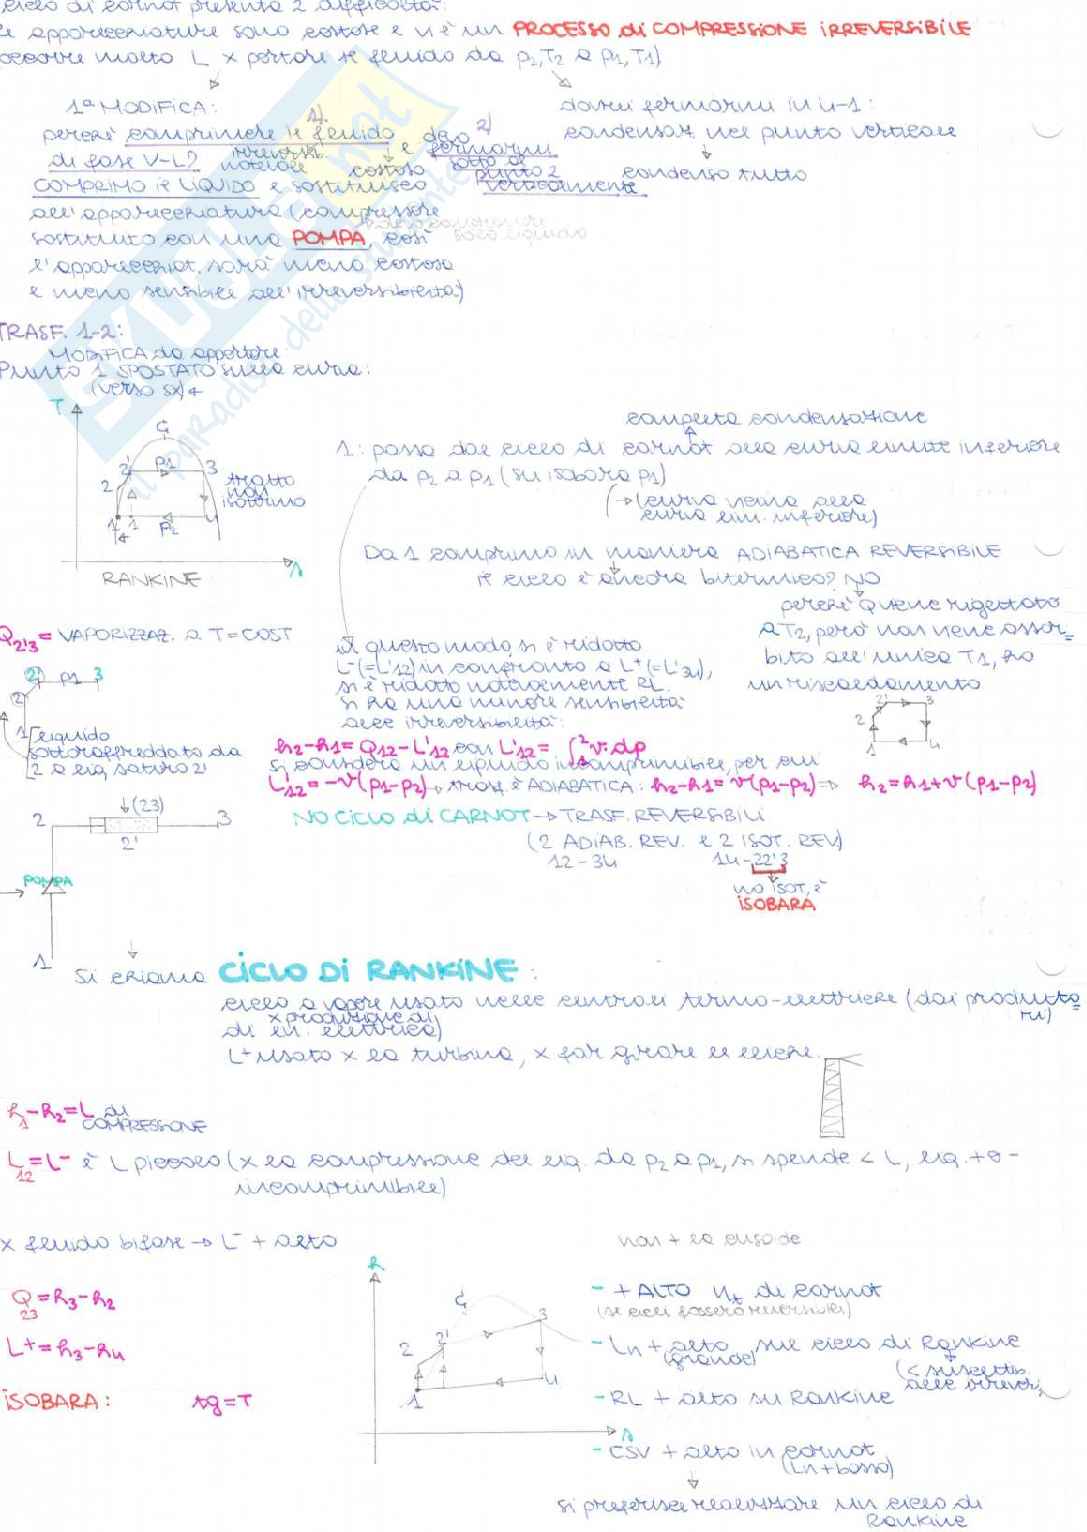 ciclo di carnot presenta 2 difficoltà:
le apparecchiature sono costose e vi è un PROCESSO di COMPRESSIONE IRREVERSIBILE
occorre molto L x portare il fluido da p2,T2 a p1,T1)
1ª MODIFICA:
perché comprimere il fluido
di fase V-L?
1)
irreversi.
notevole
costoso
e devo
2)
fermarmi
sotto al
punto 2
verticalmente
COMPRIMO il LIQUIDO e sostituisco
all'apparecchiatura (compressore
sostituito con una POMPA, così
solo liquido
l'apparecchiat. sarà meno costosa
e meno sensibile all'irreversibilità)
dovrei fermarmi in 4-1:
condensaz. nel punto verticale
condenso tutto
TRASF. 1-2:
MODIFICA da apportare
Punto 1 SPOSTATO sulla curva:
(verso sx)
T
G
2'
p1
3
2
1
1
p2
4
tratto
non
isotermo
s
RANKINE
completa condensazione
1: passa dal ciclo di carnot alla curva limite inferiore
da p2 a p1 (su isobara p1)
(curva vicina alla
curva lim. inferiore)
Da 1 comprimo in maniera ADIABATICA REVERSIBILE
il ciclo è ancora bitermico? NO
perché Q viene rigettato
a T2, però non viene assor=
bito all'unica T1, ho
un riscaldamento
Q2'3 = VAPORIZZAZ. a T=COST
2' p1 3
2
1
liquido
sottoraffreddato da
2 a liq. saturo 2'
In questo modo si è ridotto
L-(=L'12) in confronto a L+(=L'34),
si è ridotto notevolmente RL.
si ha una minore sensibilità
alle irreversibilità:
2' 3
2
1 4
h2-h1 = Q12-L'12 con L'12 = ∫ v·dp
si considera un liquido incomprimibile, per cui
L'12 = -v(p1-p2), trasf. è ADIABATICA: h2-h1 = v(p1-p2) → h2 = h1+v(p1-p2)
NO CICLO di CARNOT → TRASF. REVERSIBILI
(2 ADIAB. REV. e 2 ISOT. REV)
12-34 14-22'3
no ISOT, è
ISOBARA
(23)
2 3
2'
POMPA
1
Si chiama CICLO DI RANKINE:
ciclo a vapore usato nelle centrali termo-elettriche (dai produtto=
ri)
x produzione di
di en. elettrica)
L+ usato x la turbina, x far girare le eliche.
h1-h2 = L di
COMPRESSIONE
L12 = L- è L piccolo (x la compressione del liq. da p2 a p1, si spende < L, liq. + o -
incomprimibile)
x fluido bifase → L- + alto
Q23 = h3-h2
L+ = h3-h4
ISOBARA: tg=T
h
G
3
2'
2
1
4
s
non + la cuspide
- + ALTO ηt di carnot
(se cicli fossero reversibili)
- Ln + alto sul ciclo di Rankine
(grande)
(< suscettib.
alle irrevers.)
- RL + alto su Rankine
- CSV + alto in carnot
(Ln + basso)
si preferisce realizzare un ciclo di
Rankine